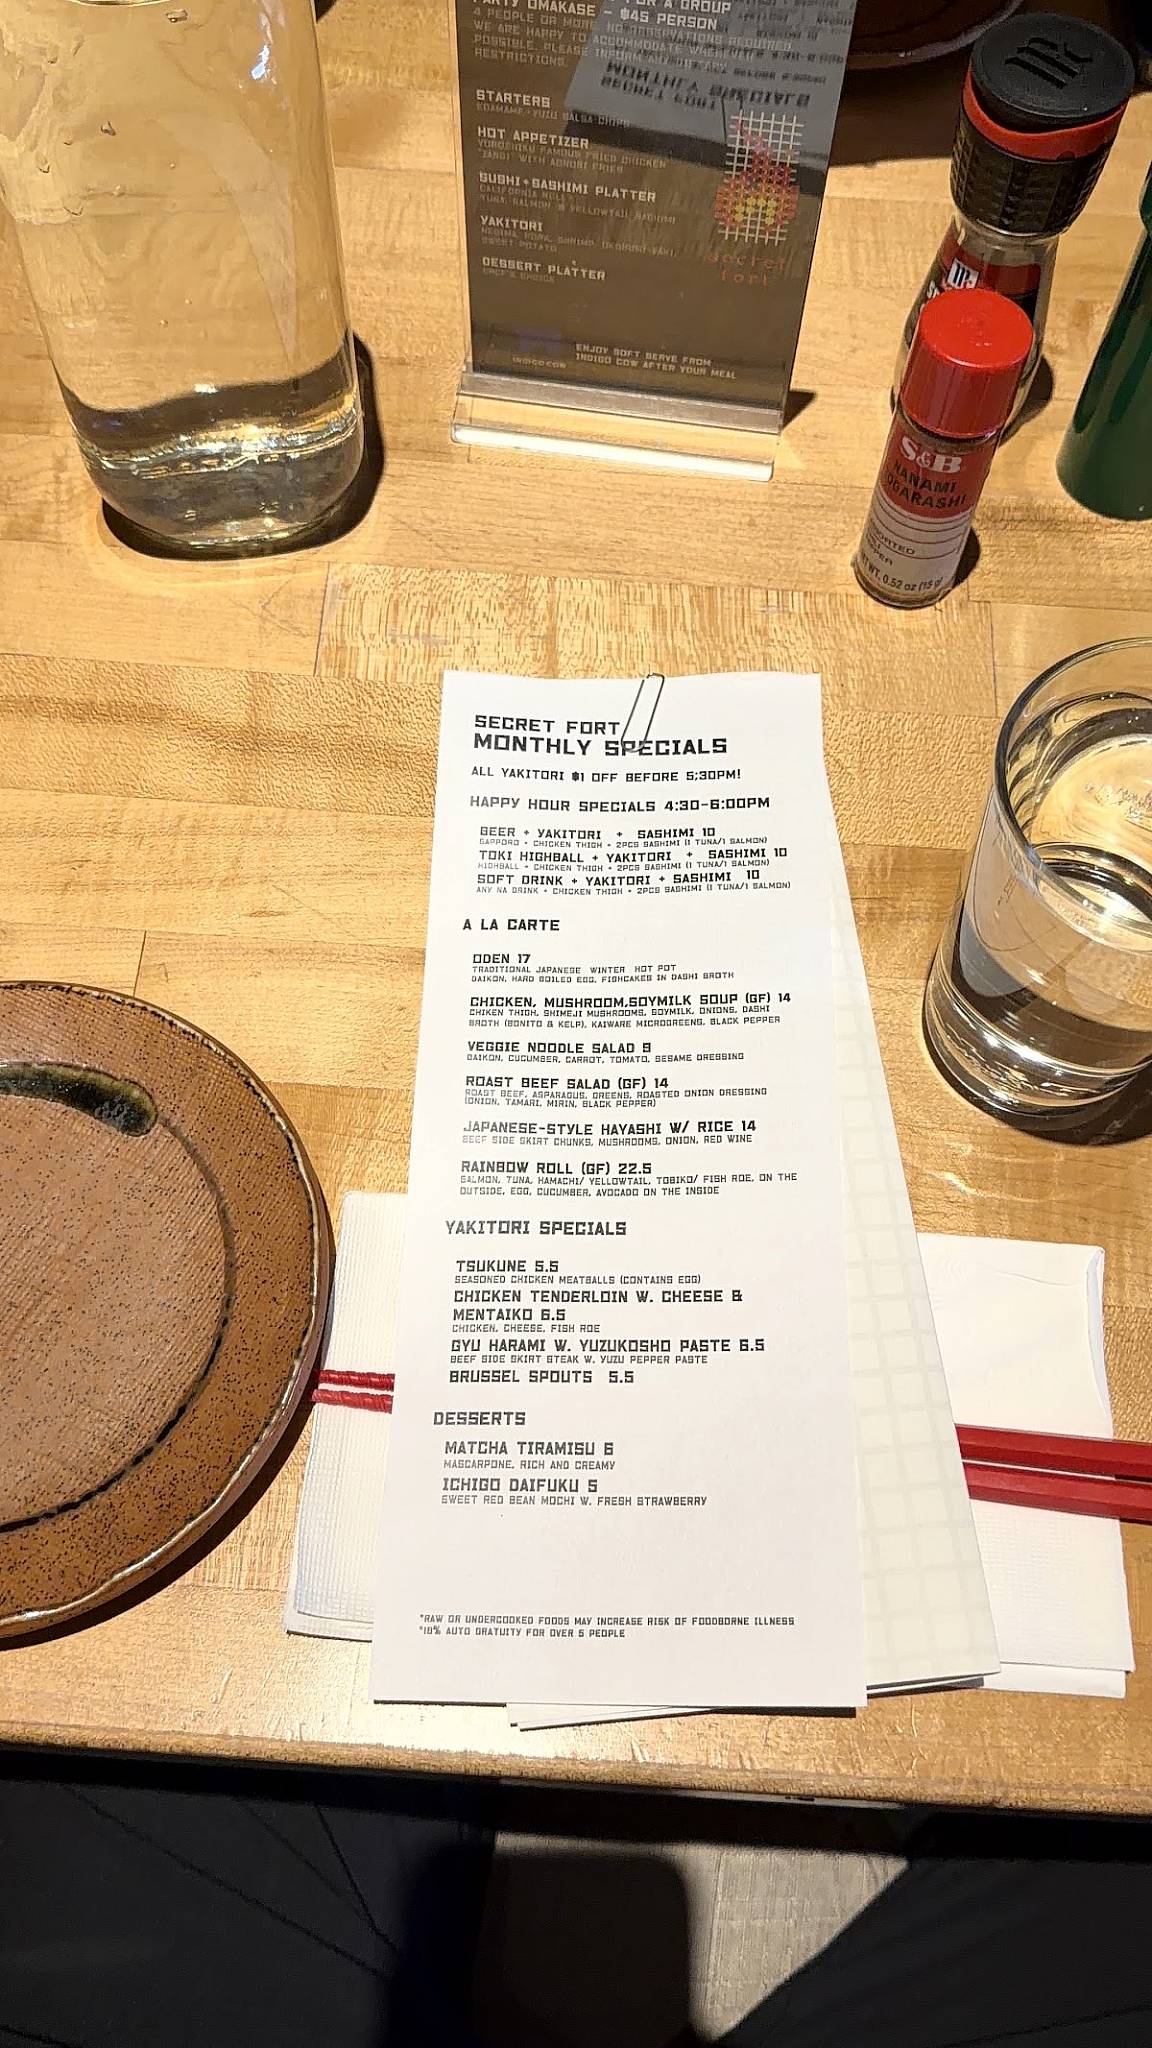 FOR A GROUP
PARTY OMAKASE - $45 PERSON
4 PEOPLE OR MORE
WE ARE HAPPY TO ACCOMMODATE WHENEVER
POSSIBLE. PLEASE INFORM ANY DIETARY
RESTRICTIONS.
STARTERS
EDAMAME + YUZU SALSA CHIPS
HOT APPETIZER
YOROSHIKU FAMOUS FRIED CHICKEN
"ZANGI" WITH AONORI FRIES
SUSHI+SASHIMI PLATTER
CALIFORNIA ROLL
TUNA, SALMON & YELLOWTAIL SASHIMI
YAKITORI
NEGIMA, PORK, SHRIMP,
SWEET POTATO
DESSERT PLATTER
CHEF'S CHOICE
secret
fort
ENJOY SOFT SERVE FROM
INDIGO COW AFTER YOUR MEAL
INDIGO COW
S&B
NANAMI
TOGARASHI
NET WT. 0.52 oz (15 g)
SECRET FORT
MONTHLY SPECIALS
ALL YAKITORI $1 OFF BEFORE 5;30PM!
HAPPY HOUR SPECIALS 4:30-6:00PM
BEER + YAKITORI + SASHIMI 10
SAPPORO + CHICKEN THIGH + 2PCS SASHIMI (1 TUNA/1 SALMON)
TOKI HIGHBALL + YAKITORI + SASHIMI 10
HIGHBALL + CHICKEN THIGH + 2PCS SASHIMI (1 TUNA/1 SALMON)
SOFT DRINK + YAKITORI + SASHIMI 10
ANY NA DRINK + CHICKEN THIGH + 2PCS SASHIMI (1 TUNA/1 SALMON)
A LA CARTE
ODEN 17
TRADITIONAL JAPANESE WINTER HOT POT
DAIKON, HARD BOILED EGG, FISHCAKES IN DASHI BROTH
CHICKEN, MUSHROOM,SOYMILK SOUP (GF) 14
CHIKEN THIGH, SHIMEJI MUSHROOMS, SOYMILK, ONIONS, DASHI
BROTH (BONITO & KELP), KAIWARE MICROGREENS, BLACK PEPPER
VEGGIE NOODLE SALAD 9
DAIKON, CUCUMBER, CARROT, TOMATO, SESAME DRESSING
ROAST BEEF SALAD (GF) 14
ROAST BEEF, ASPARAGUS, GREENS, ROASTED ONION DRESSING
(ONION, TAMARI, MIRIN, BLACK PEPPER)
JAPANESE-STYLE HAYASHI W/ RICE 14
BEEF SIDE SKIRT CHUNKS, MUSHROOMS, ONION, RED WINE
RAINBOW ROLL (GF) 22.5
SALMON, TUNA, HAMACHI/ YELLOWTAIL, TOBIKO/ FISH ROE, ON THE
OUTSIDE, EGG, CUCUMBER, AVOCADO ON THE INSIDE
YAKITORI SPECIALS
TSUKUNE 5.5
SEASONED CHICKEN MEATBALLS (CONTAINS EGG)
CHICKEN TENDERLOIN W. CHEESE &
MENTAIKO 6.5
CHICKEN, CHEESE, FISH ROE
GYU HARAMI W. YUZUKOSHO PASTE 6.5
BEEF SIDE SKIRT STEAK W. YUZU PEPPER PASTE
BRUSSEL SPOUTS 5.5
DESSERTS
MATCHA TIRAMISU 6
MASCARPONE, RICH AND CREAMY
ICHIGO DAIFUKU 5
SWEET RED BEAN MOCHI W. FRESH STRAWBERRY
*RAW OR UNDERCOOKED FOODS MAY INCREASE RISK OF FOODBORNE ILLNESS
*18% AUTO GRATUITY FOR OVER 5 PEOPLE